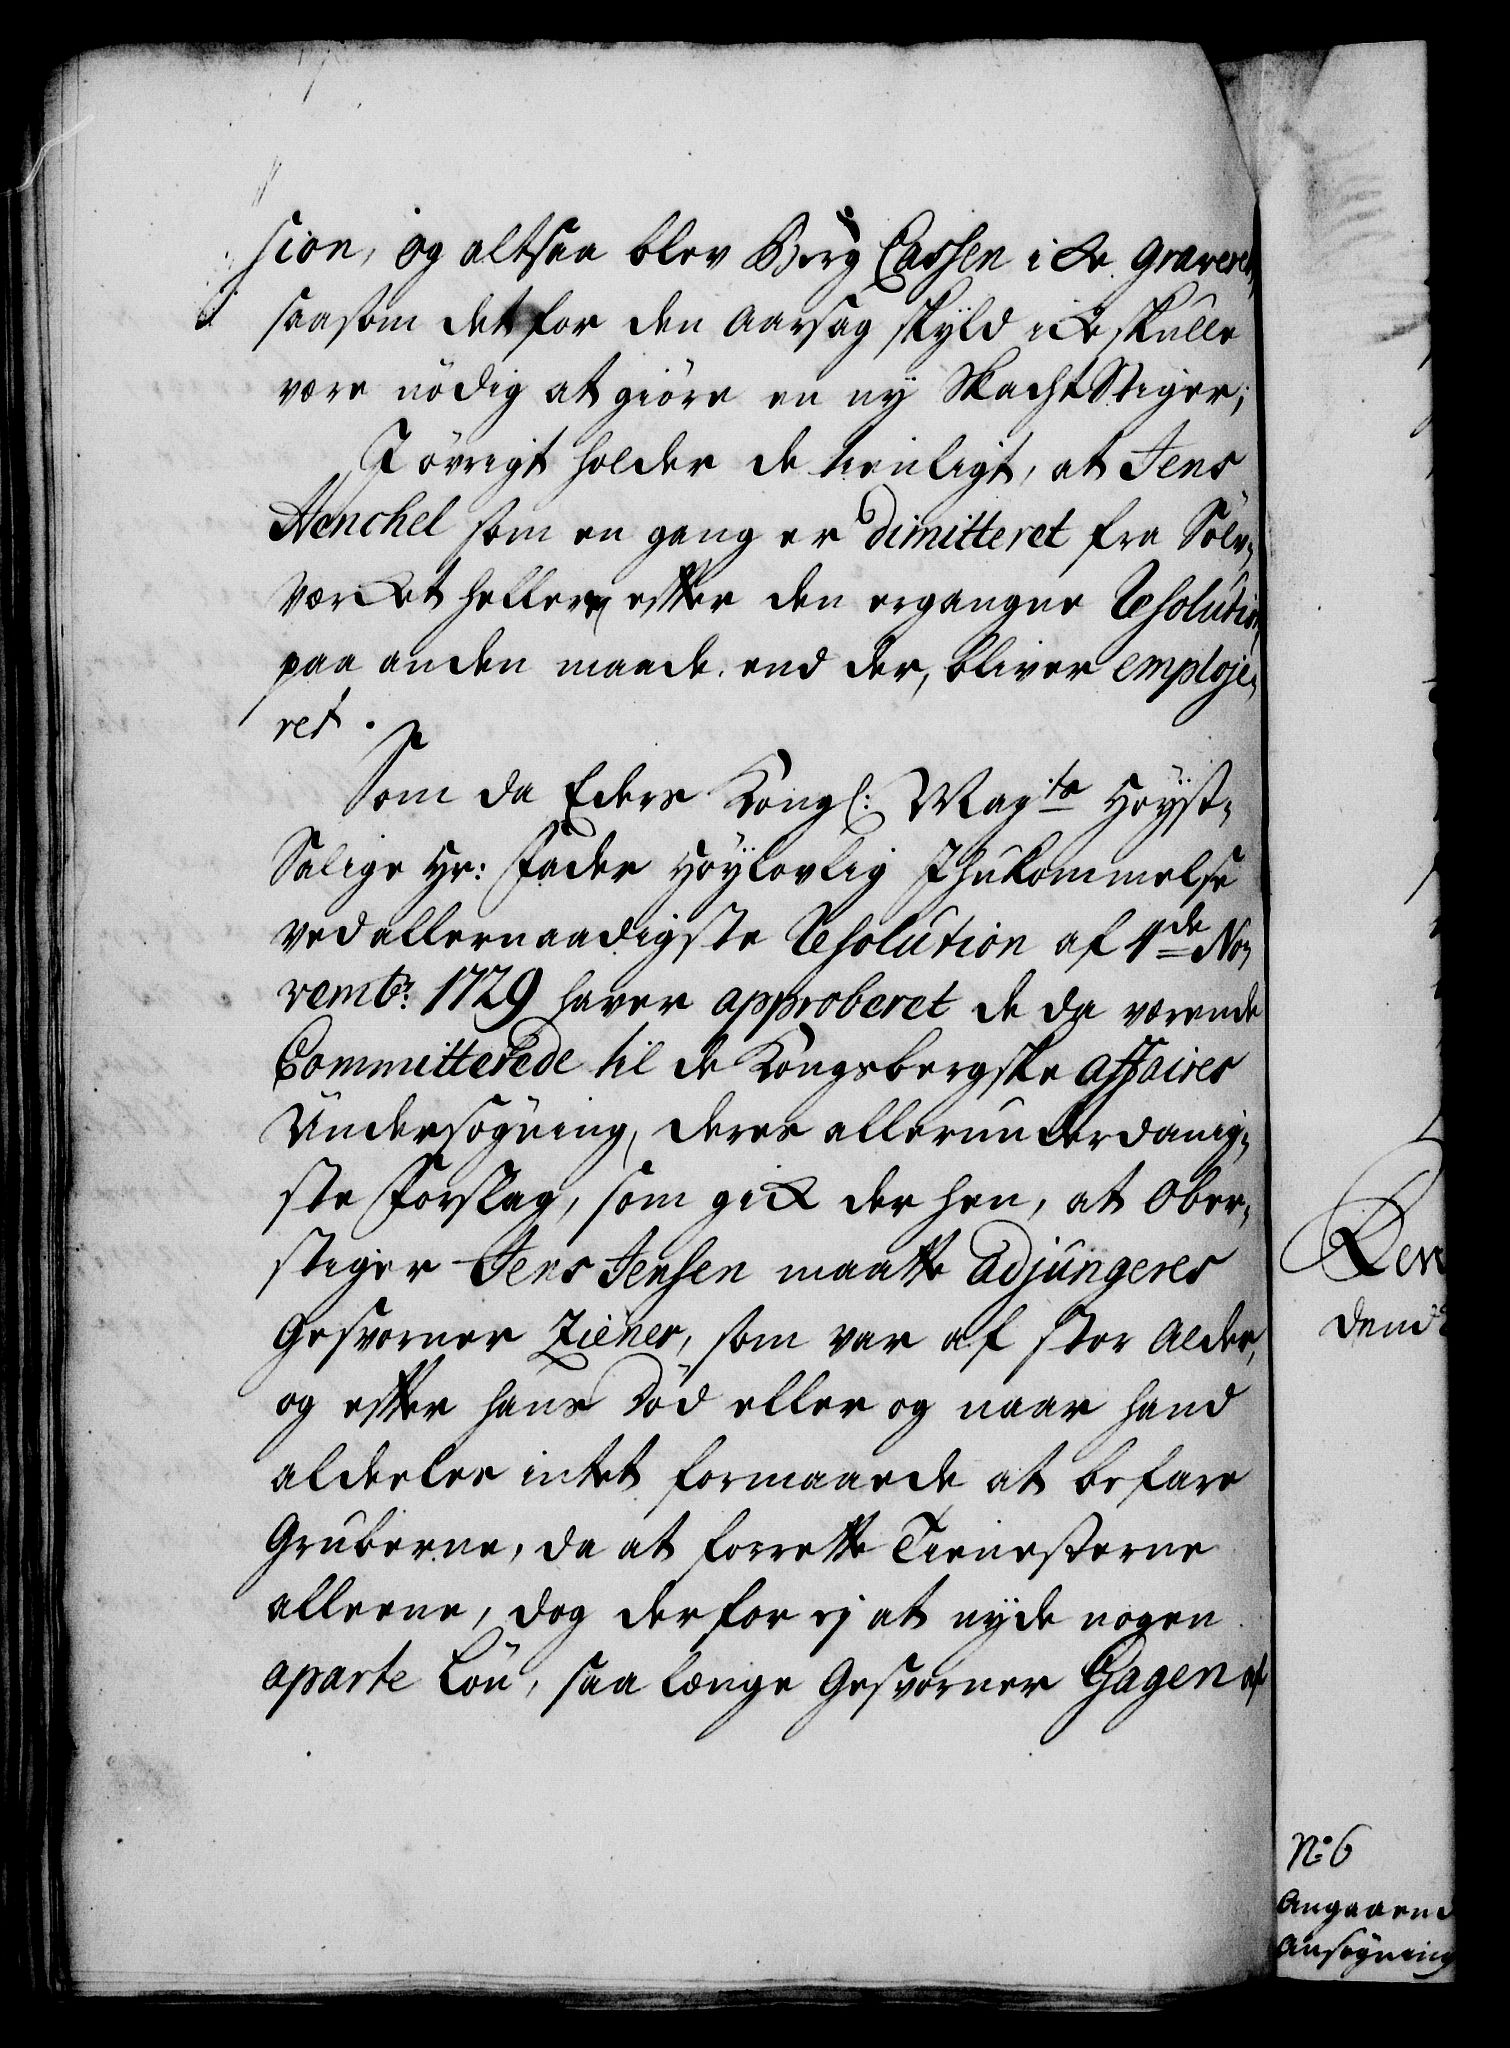 sion, og altsaa blev Berg Cassen icke graveret,
saasom det for den Aarsag skyld icke skulle
være nödig at giöre en ny Skacht Stiger;
I övrigt holder de tienligt, at Jens
Henchel som en gang er dimitteret fra Sölv-
værcket heller efter den ergangne Resolution
paa anden maade end der, bliver employe-
ret.
Som da Eders Kongl: Mayts Höyst-
Salige Hr: Fader Höylovlig Ihukommelse
ved allernaadigste Resolution af 4de No-
vembr: 1729 haver approberet de da værende
Committerede til de Kongsbergske affaires
Undersögning, deres allerunderdanig-
ste Forslag, som gick der hen, at Ober-
stiger Jens Jensen maatte adjungeres
Gesvorner Ziener, som var af stor Alder,
og efter hans Död eller og naar hand
alderles intet formaaede at befare
Gruberne, da at forrette Tienesterne
alleene, dog derfor ej at nyde nogen
aparte Lön, saa længe Gesvorner Gagen af
Rev
dend
No 6
Angaaend
Ansögning